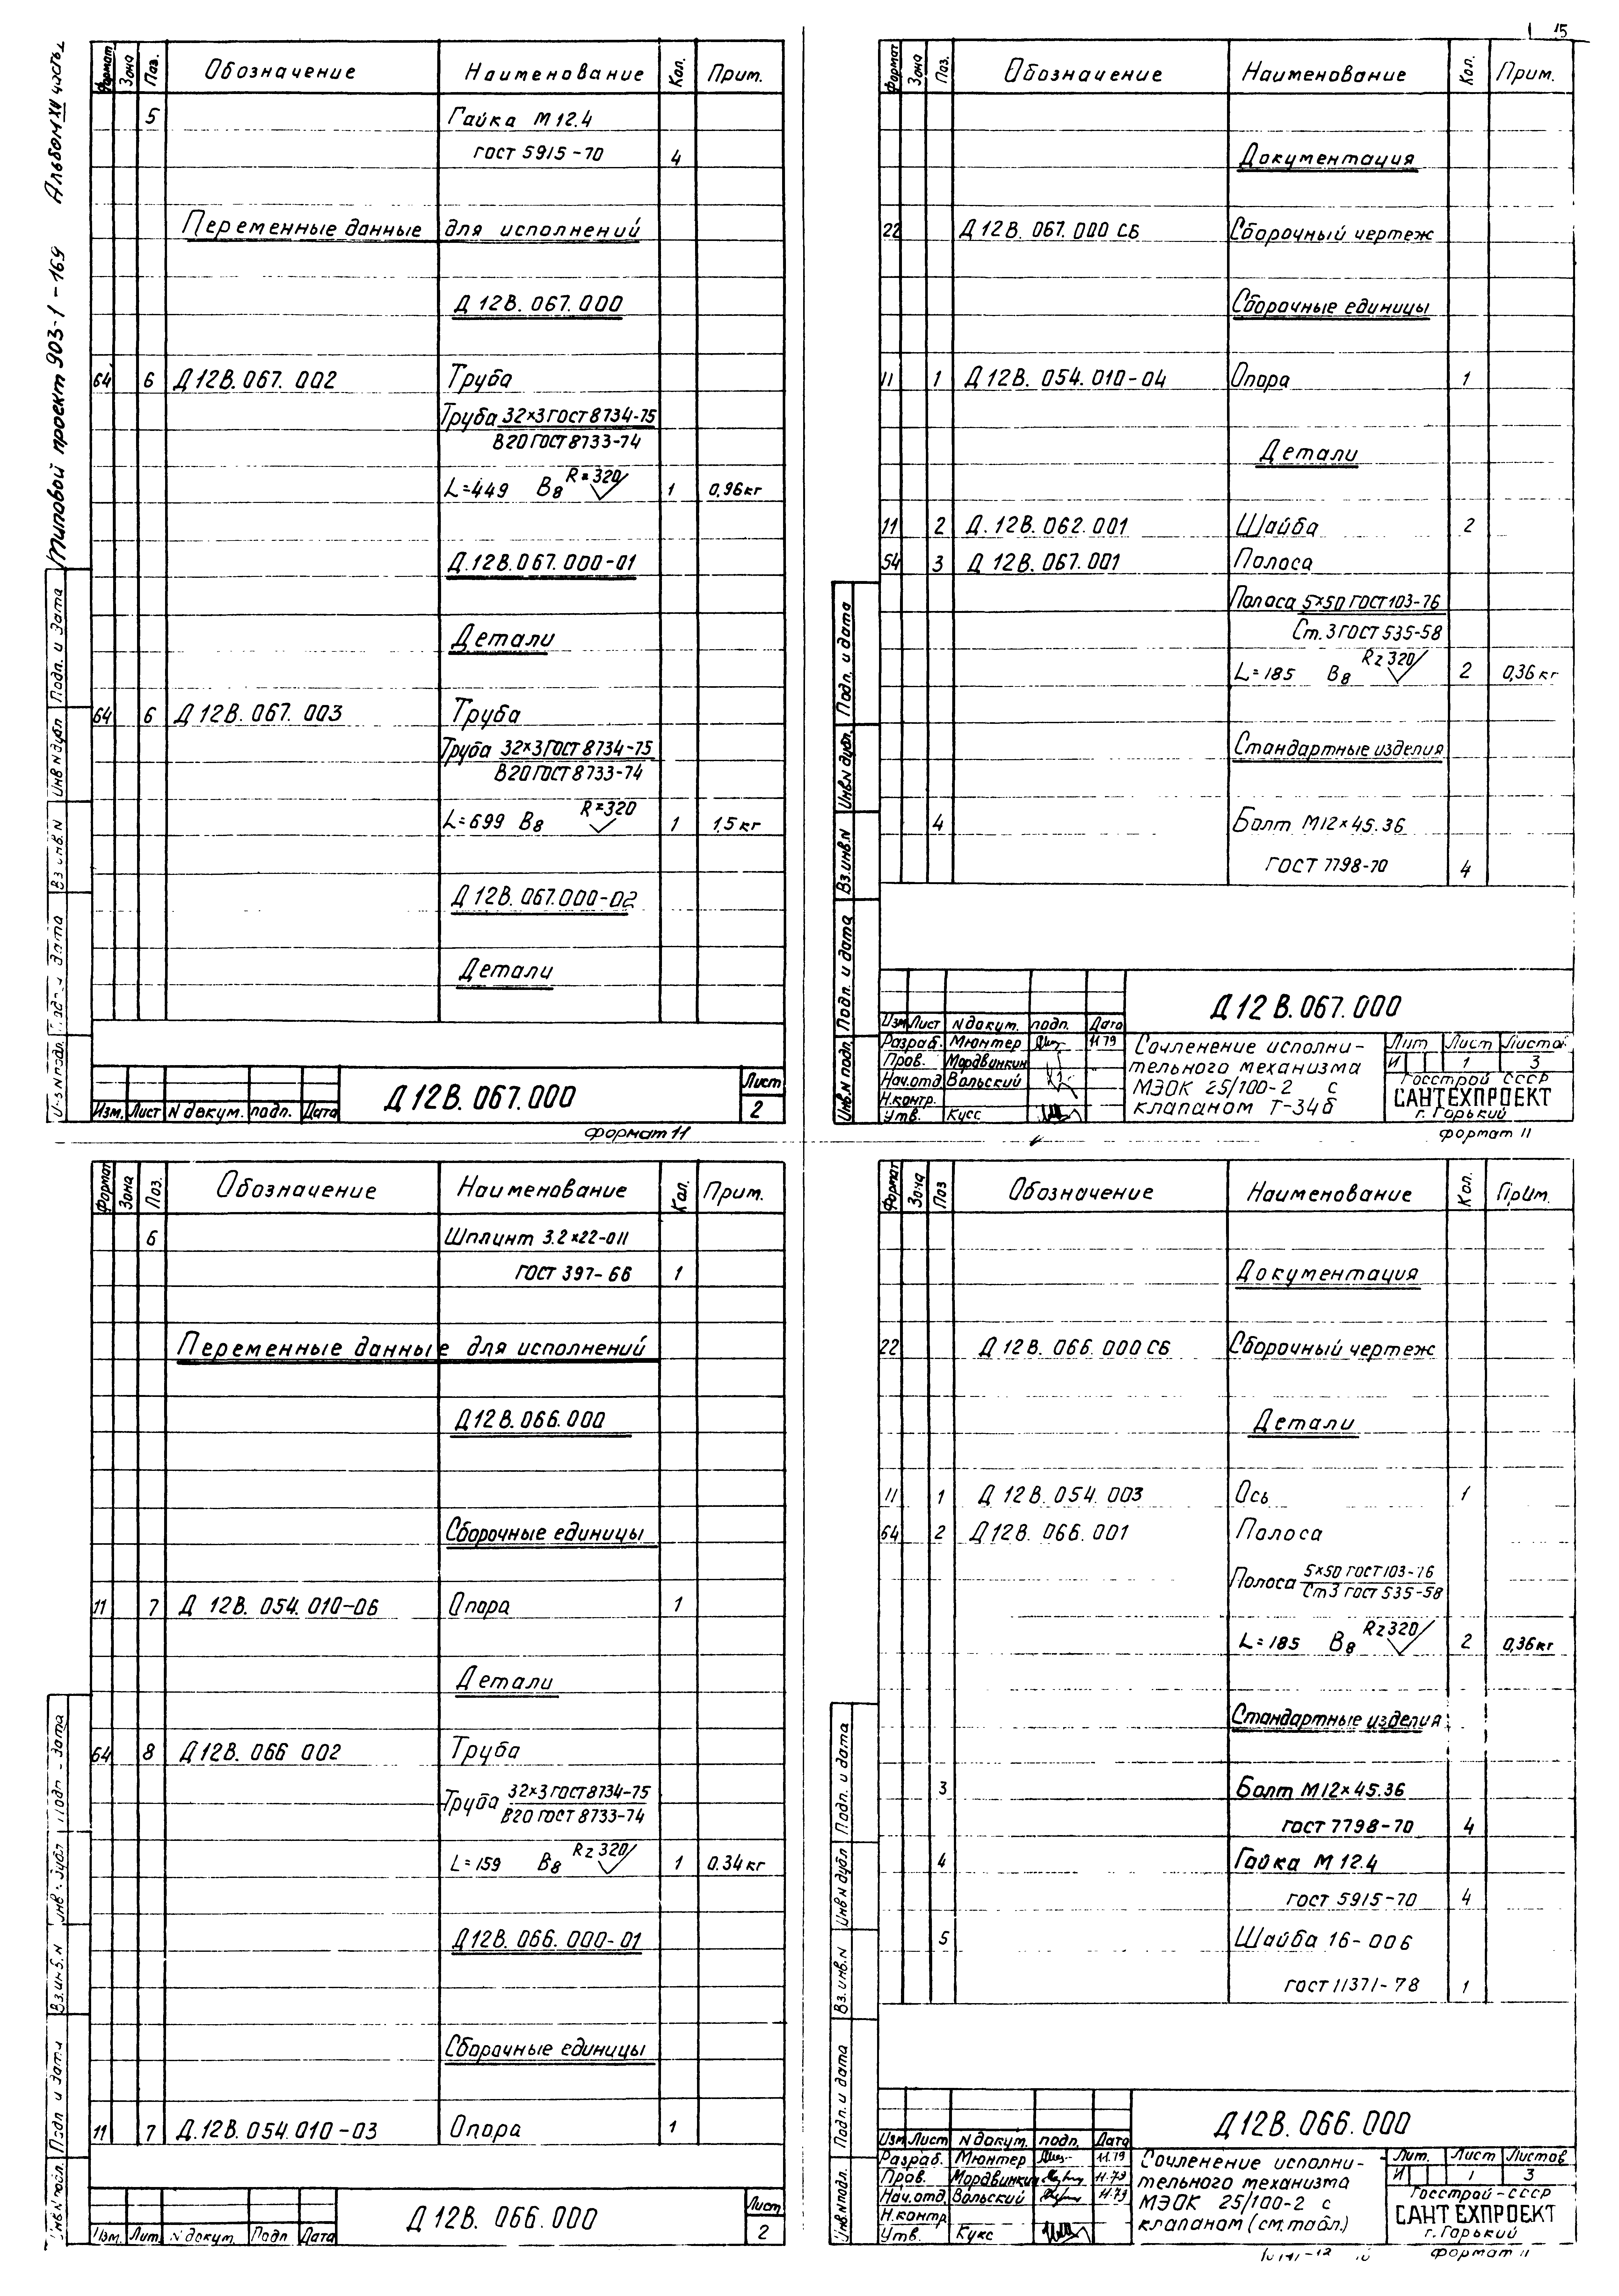 Альбом XV часть 1
Типовой проект 903-1-169
Формат Зона Поз. Обозначение Наименование Кол. Прим.
5 Гайка М12.4
ГОСТ 5915-70 4
Переменные данные для исполнений
Д 12В.067.000
64 6 Д12В.067.002 Труба
Труба 32×3 ГОСТ 8734-75
В20 ГОСТ 8733-74
L=449 В8 Rz320 1 0,96кг
Д.12В.067.000-01
Детали
64 6 Д12В.067.003 Труба
Труба 32×3 ГОСТ 8734-75
В20 ГОСТ 8733-74
L=699 В8 Rz320 1 1,5кг
Д 12В.067.000-02
Детали
Изм. Лист N докум. подп. Дата
Д12В.067.000
Лист
2
Формат 11
Инв N подл. Подп. и дата Вз.инв.N Инв N дубл Подп. и дата
15
Формат Зона Поз. Обозначение Наименование Кол. Прим.
Документация
22 Д12В.067.000 СБ Сборочный чертеж
Сборочные единицы
11 1 Д12В.054.010-04 Опора 1
Детали
11 2 Д.12В.062.001 Шайба 2
54 3 Д 12В.067.001 Полоса
Полоса 5×50 ГОСТ 103-76
Ст.3 ГОСТ 535-58
L=185 В8 Rz320 2 0,36кг
Стандартные изделия
4 Болт М12×45.36
ГОСТ 7798-70 4
Д12В.067.000
Изм Лист N докум. подп. Дата
Разраб. Мюнтер 11.79
Пров. Мордвинкин
Нач.отд Вольский
Н.контр.
Утв. Кусс
Сочленение исполни-
тельного механизма
МЭОК 25/100-2 с
клапаном Т-34б
Лит Лист Листов
И 1 3
Госстрой СССР
САНТЕХПРОЕКТ
г. Горький
Формат 11
Инв.N подл. Подп. и дата Вз.инв.N Инв.N дубл. Подп. и дата
Формат Зона Поз. Обозначение Наименование Кол. Прим.
6 Шплинт 3.2×22-011
ГОСТ 397-66 1
Переменные данные для исполнений
Д12В.066.000
Сборочные единицы
11 7 Д 12В.054.010-06 Опора 1
Детали
64 8 Д12В.066 002 Труба
Труба 32×3 ГОСТ 8734-75
В20 ГОСТ 8733-74
L=159 В8 Rz320 1 0.34кг
Д12В.066.000-01
Сборочные единицы
11 7 Д.12В.054.010-03 Опора 1
Изм. Лит. N докум. Подп Дата
Д12В.066.000
Лист
2
Инв.N подл. Подп и дата Вз.инв.N Инв. дубл Подп. дата
Формат Зона Поз Обозначение Наименование Кол. Прим.
Документация
22 Д12В.066.000 СБ Сборочный чертеж
Детали
11 1 Д 12В.054.003 Ось 1
64 2 Д12В.066.001 Полоса
Полоса 5×50 ГОСТ 103-76
Ст3 ГОСТ 535-58
L=185 В8 Rz320 2 0,36кг
Стандартные изделия
3 Болт М12×45.36
ГОСТ 7798-70 4
4 Гайка М 12.4
ГОСТ 5915-70 4
5 Шайба 16-006
ГОСТ 11371-78 1
Д12В.066.000
Изм Лист N докум. подп. Дата
Разраб. Мюнтер 11.79
Пров. Мордвинкин 11.79
Нач.отд. Вольский 11.79
Н.контр
Утв. Кукс
Сочленение исполни-
тельного механизма
МЭОК 25/100-2 с
клапаном (см.табл.)
Лит. Лист Листов
И 1 3
Госстрой-СССР
САНТЕХПРОЕКТ
г. Горький
Формат 11
Инв.N подл. Подп. и дата Вз.инв.N Инв N дубл Подп. и дата